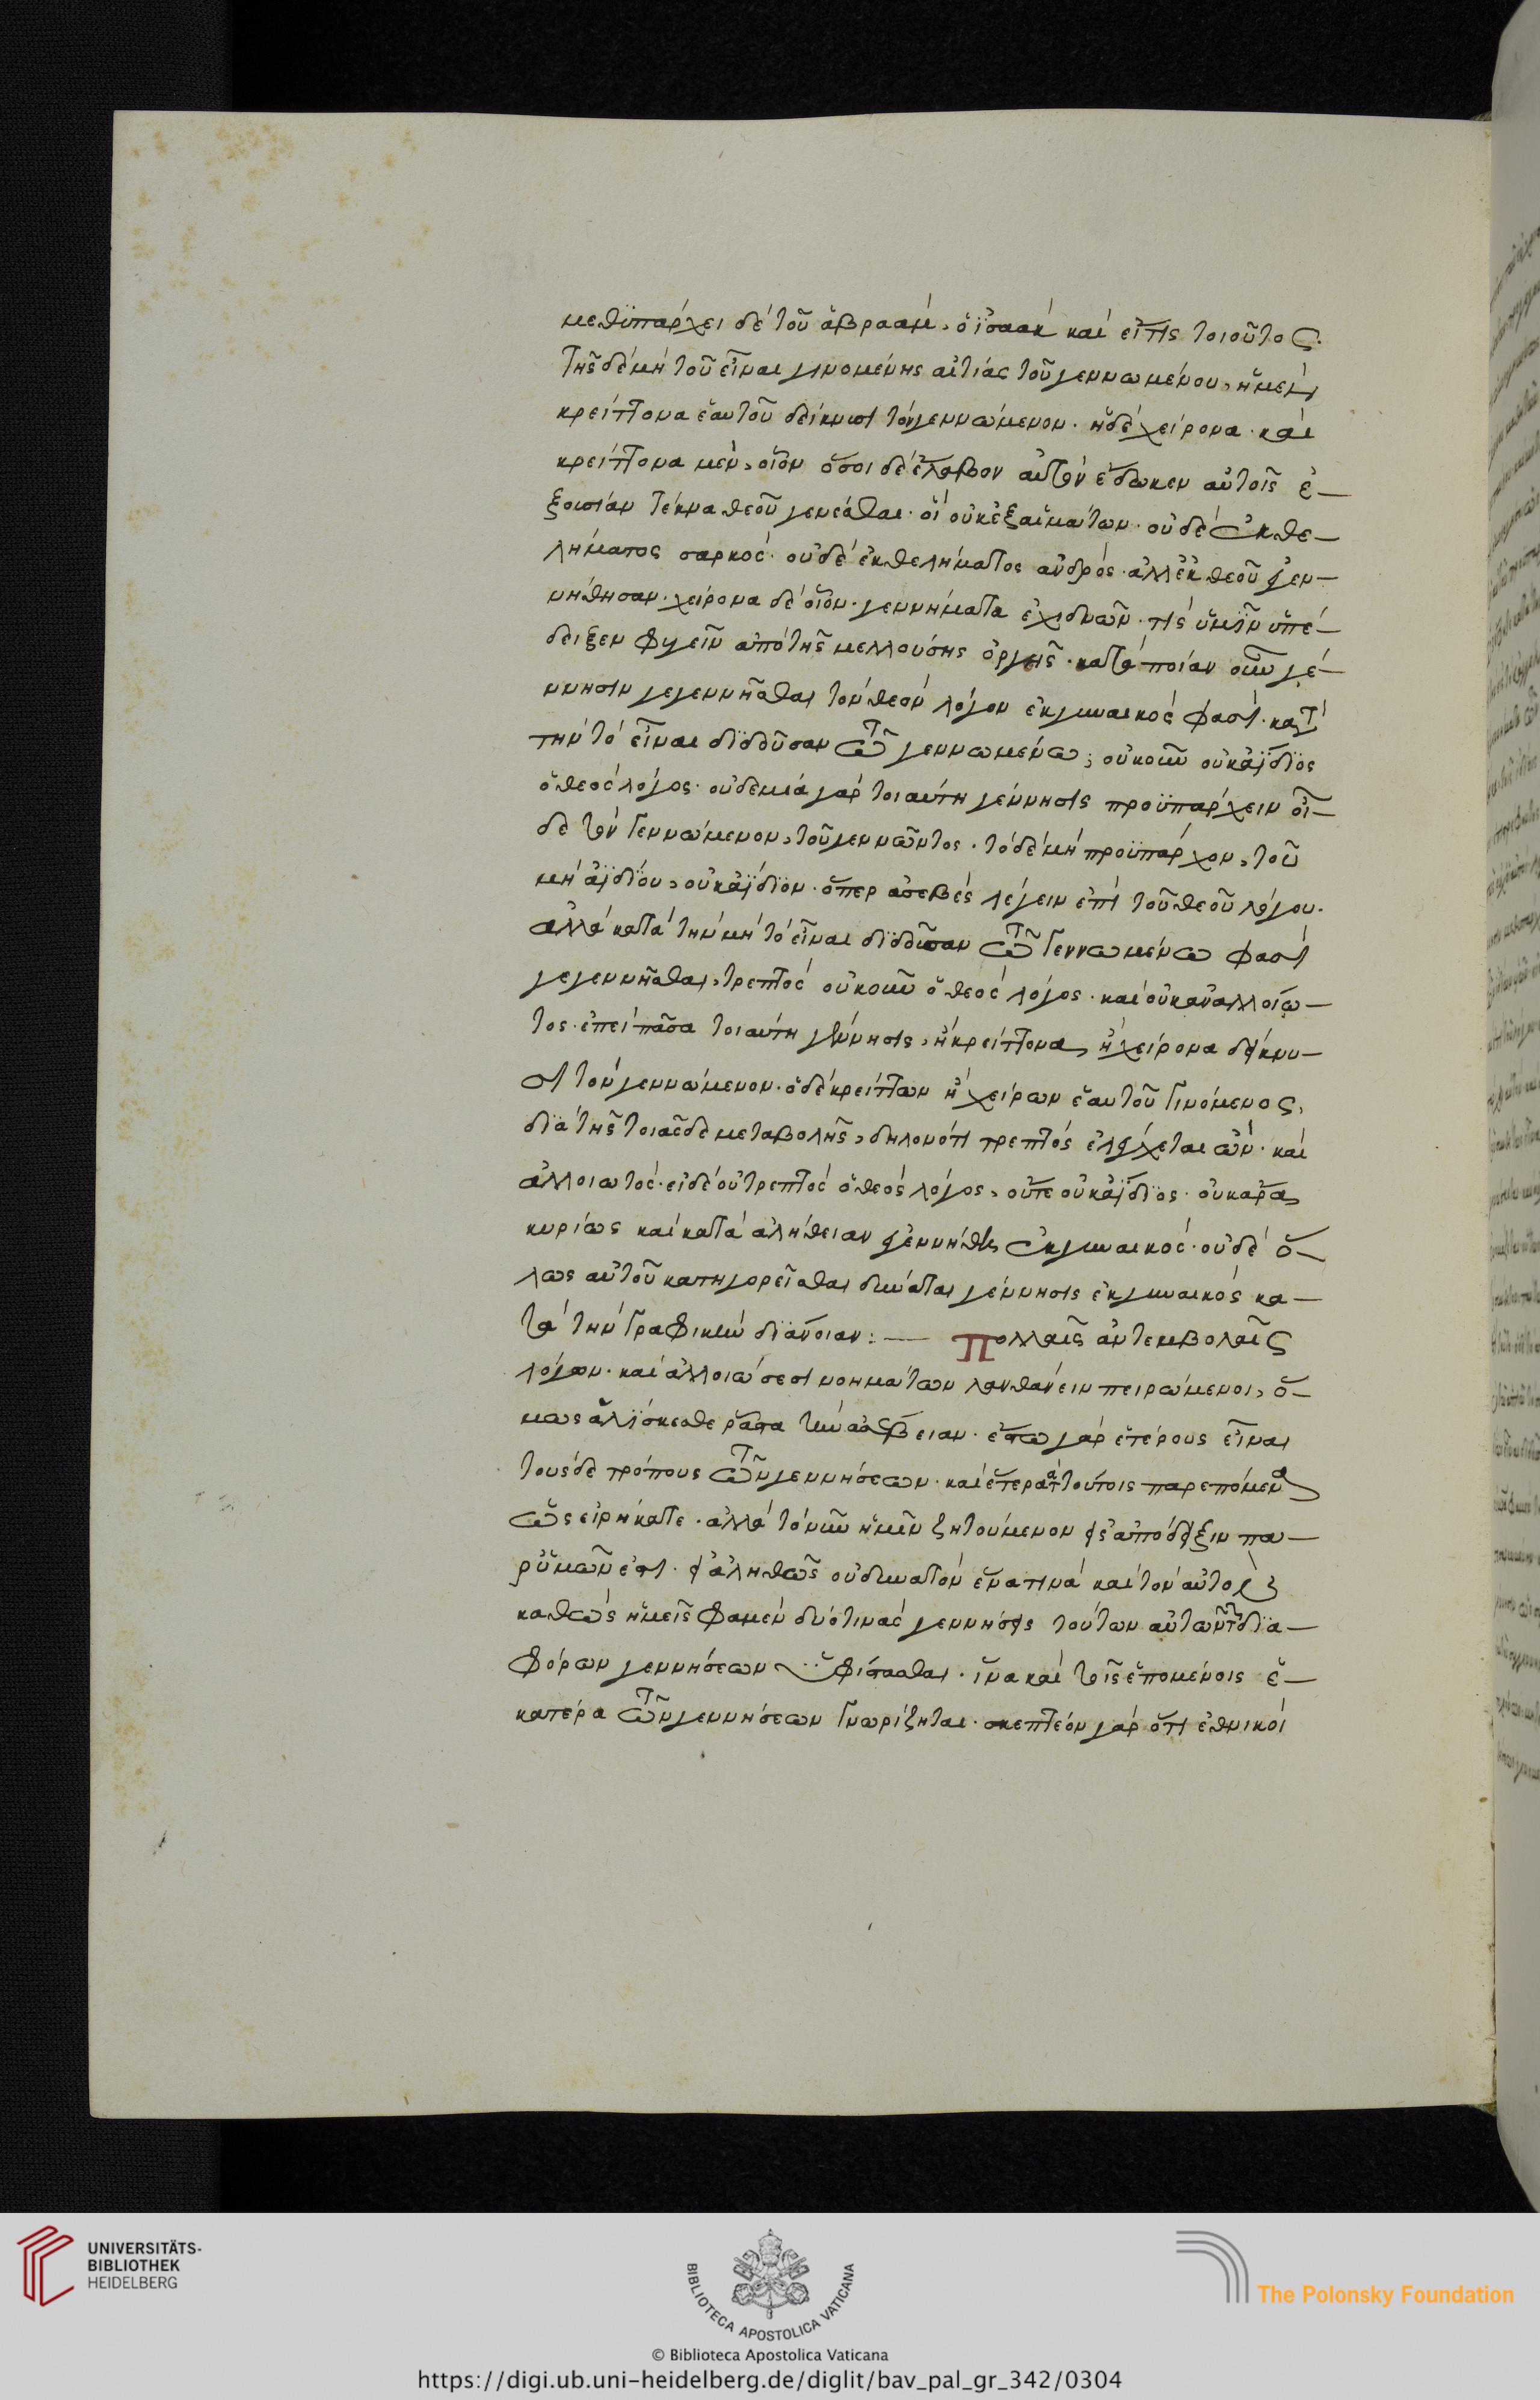 μεθυπάρχει δὲ τοῦ ἀβραὰμ, ὁ ἰσαὰκ καὶ εἴ τις τοιοῦτος.
τῆς δὲ μὴ τοῦ εἶναι γινομένης αἰτίας τοῦ γεννωμένου, ἢ μὲν
κρείττονα ἑαυτοῦ δείκνυσι τὸν γεννώμενον. ἢ δὲ χείρονα. καὶ
κρείττονα μὲν, οἷον ὅσοι δὲ ἔλαβον αὐτὸν ἔδωκεν αὐτοῖς ἐ-
ξουσίαν τέκνα θεοῦ γενέσθαι. οἳ οὐκ ἐξ αἱμάτων. οὐδὲ ἐκ θε-
λήματος σαρκός. οὐδὲ ἐκ θελήματος ἀνδρός. ἀλλ' ἐκ θεοῦ ἐγεν-
νήθησαν. χείρονα δὲ οἷον. γεννήματα ἐχιδνῶν. τίς ὑμῖν ὑπέ-
δειξεν φυγεῖν ἀπὸ τῆς μελλούσης ὀργῆς. κατὰ ποίαν οὖν γέ-
ννησιν γεγεννῆσθαι τὸν θεὸν λόγον ἐκ γυναικός φασι. κατὰ
τὴν τὸ εἶναι διδοῦσαν τῷ γεννωμένῳ; οὐκοῦν οὐκ ἀΐδιος
ὁ θεὸς λόγος. οὐδεμία γὰρ τοιαύτη γέννησις προϋπάρχειν οἶ-
δε τὸν γεννώμενον, τοῦ γεννῶντος. τὸ δὲ μὴ προϋπάρχον, τοῦ
μὴ ἀϊδίου, οὐκ ἀΐδιον. ὅπερ ἀσεβὲς λέγειν ἐπὶ τοῦ θεοῦ λόγου.
ἀλλὰ κατὰ τὴν μὴ τὸ εἶναι διδοῦσαν τῷ γεννωμένῳ φασὶ
γεγεννῆσθαι, τρεπτὸς οὐκοῦν ὁ θεὸς λόγος. καὶ οὐκ ἀναλλοίω-
τος. ἐπεὶ πᾶσα τοιαύτη γέννησις, ἢ κρείττονα, ἢ χείρονα δείκνυ-
σι τὸν γεννώμενον. ὁ δὲ κρείττων ἢ χείρων ἑαυτοῦ γινόμενος,
διὰ τῆς τοιᾶσδε μεταβολῆς, δηλονότι τρεπτὸς ἐλέγχεται ὤν. καὶ
ἀλλοιωτός. εἰ δὲ οὐ τρεπτὸς ὁ θεὸς λόγος, οὔτε οὐκ ἀΐδιος. οὐκ ἄρα
κυρίως καὶ κατὰ ἀλήθειαν ἐγεννήθη ἐκ γυναικός. οὐδὲ ὅ-
λως αὐτοῦ κατηγορεῖσθαι δύναται γέννησις ἐκ γυναικὸς κα-
τὰ τὴν γραφικὴν διάνοιαν:— Πολλαῖς ἀντεμβολαῖς
λόγων. καὶ ἀλλοιώσεσι νοημάτων λανθάνειν πειρώμενοι, ὅ-
μως ἁλίσκεσθε ῥᾷστα τὴν ἀσέβειαν. ἔστω γὰρ ἑτέρους εἶναι
τοὺς δὲ τρόπους τῶν γεννήσεων. καὶ ἕτερα τὰ τούτοις παρεπόμενα
ὡς εἰρήκατε. ἀλλὰ τὸ νῦν ἡμῖν ζητούμενον εἰς ἀπόδειξιν πα-
ρ' ὑμῶν ἐστι. εἰ ἀληθῶς οὐ δυνατὸν ἕνα τινὰ καὶ τὸν αὐτὸν
καθὼς ἡμεῖς φαμὲν δύο τινὰς γεννήσεις τούτων αὐτῶν τῶν δια-
φόρων γεννήσεων ὑφίστασθαι. ἵνα καὶ τοῖς ἑπομένοις ἑ-
κατέρα τῶν γεννήσεων γνωρίζηται. σκεπτέον γὰρ ὅτι ἐθνικοὶ
UNIVERSITÄTS-
BIBLIOTHEK
HEIDELBERG
BIBLIOTECA APOSTOLICA VATICANA
The Polonsky Foundation
© Biblioteca Apostolica Vaticana
https://digi.ub.uni-heidelberg.de/diglit/bav_pal_gr_342/0304